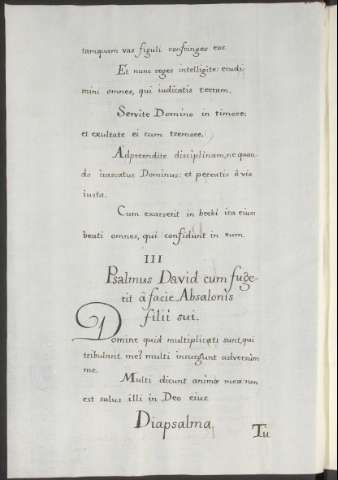 tamquam vas figuli confringes eos
Et nunc reges intelligite: erudi-
mini omnes, qui iudicatis terram.
Servite Domino in timore:
et exultate ei cum tremore.
Adpreendite disciplinam, ne quan-
do irascatur Dominus: et pereatis â via
iusta.
Cum exarserit in brebi ira eius:
beati omnes, qui confidunt in eum.
III
Psalmus David cum fuge-
rit â facie Absalonis
filii sui.
Domine quid multiplicati sunt, qui
tribulant me? multi insurgunt adversùm
me.
Multi dicunt animæ meæ: non
est salus illi in Deo eius.
Diapsalma.
Tu